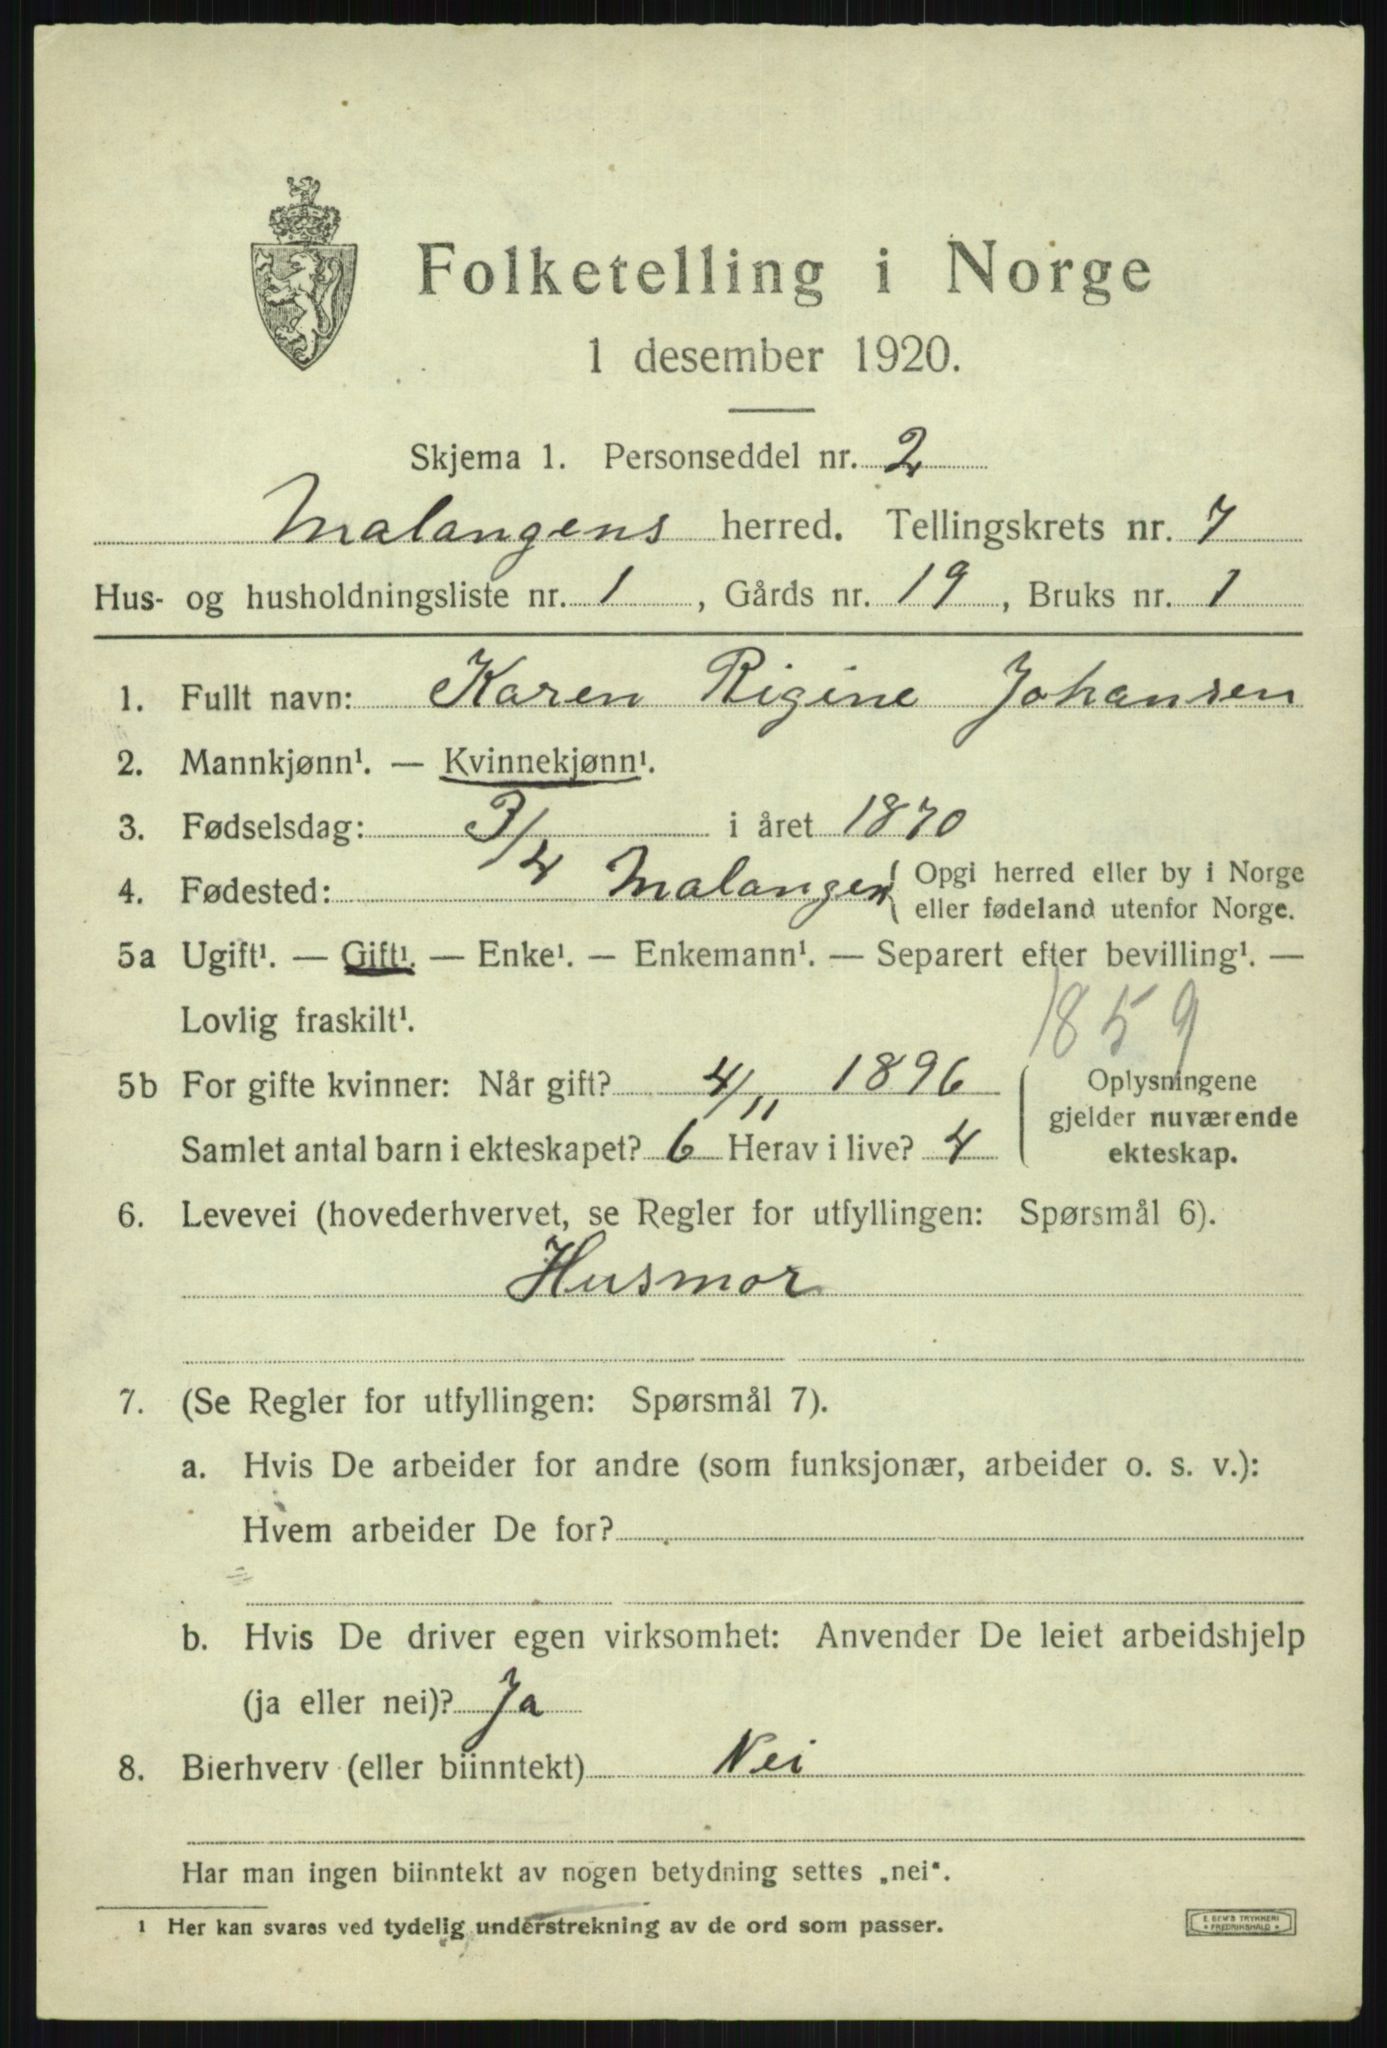 Folketelling i Norge
1 desember 1920.
Skjema 1. Personseddel nr. 2
Malangens herred. Tellingskrets nr. 7
Hus- og husholdningsliste nr. 1, Gårds nr. 19, Bruks nr. 1
1. Fullt navn: Karen Rigine Johansen
2. Mannkjønn¹. — Kvinnekjønn¹.
3. Fødselsdag: 3/4 i året 1870
4. Fødested: Malangen { Opgi herred eller by i Norge
eller fødeland utenfor Norge.
5a Ugift¹. — Gift¹. — Enke¹. — Enkemann¹. — Separert efter bevilling¹. —
Lovlig fraskilt¹.
1859
5b For gifte kvinner: Når gift? 4/11 1896
Samlet antal barn i ekteskapet? 6 Herav i live? 4
Oplysningene
gjelder nuværende
ekteskap.
6. Levevei (hovederhvervet, se Regler for utfyllingen: Spørsmål 6).
Husmor
7. (Se Regler for utfyllingen: Spørsmål 7).
a. Hvis De arbeider for andre (som funksjonær, arbeider o. s. v.):
Hvem arbeider De for?
b. Hvis De driver egen virksomhet: Anvender De leiet arbeidshjelp
(ja eller nei)? Ja
8. Bierhverv (eller biinntekt) Nei
Har man ingen biinntekt av nogen betydning settes „nei“.
¹ Her kan svares ved tydelig understrekning av de ord som passer.
E. SEM'S TRYKKERI
* FREDRIKSHALD *